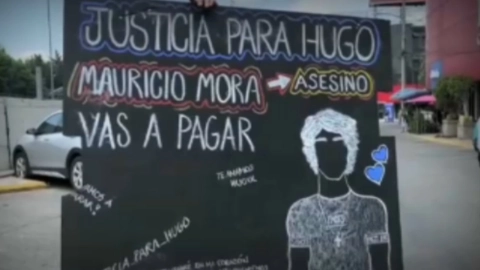 JUSTICIA PARA HUGO
MAURICIO MORA → ASESINO
VAS A PAGAR
TE AMAMOS
HUGO
CIA_PARA_HUGO